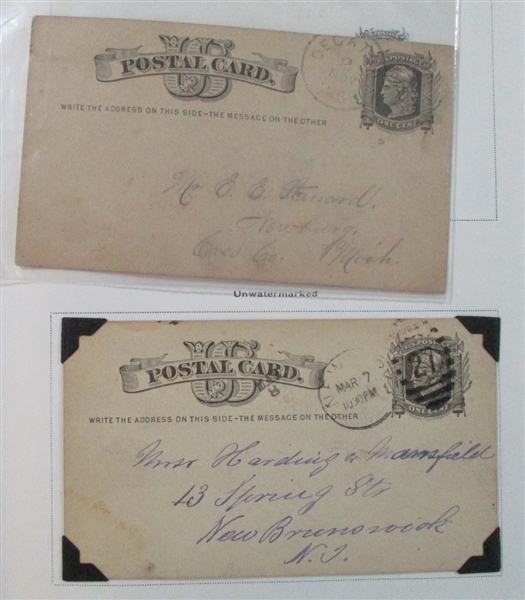 U S
POSTAL CARD.
WRITE THE ADDRESS ON THIS SIDE–THE MESSAGE ON THE OTHER
POSTAGE
ONE CENT
Mr E. E.
Newburg.
Cass Co. Mich.
Unwatermarked
U S
POSTAL CARD.
WRITE THE ADDRESS ON THIS SIDE–THE MESSAGE ON THE OTHER
MAR 7
1030PM
ONE CENT
Harding & Mansfield
13 Spring Str
New Brunswick
N. J.